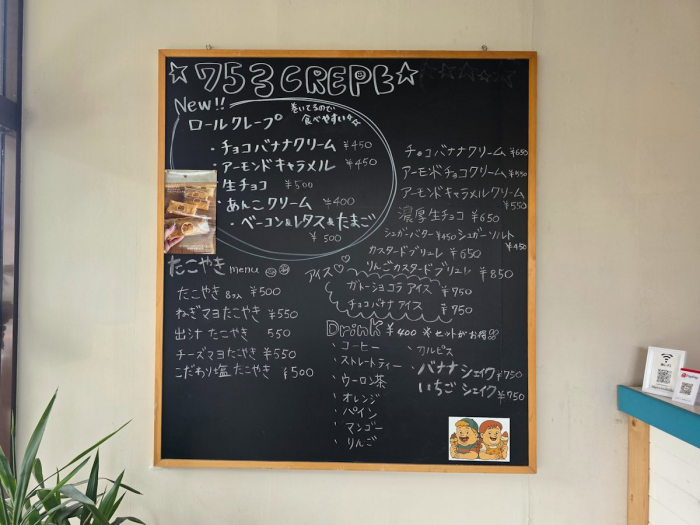 753 CREPE
New!!
ロールクレープ
巻いてるので
食べやすい
・チョコバナナクリーム ¥450
・アーモンドキャラメル ¥450
生チョコ ¥500
・あんこクリーム ¥400
・ベーコン&レタス&たまご
¥500
チョコバナナクリーム ¥650
アーモンドチョコクリーム ¥550
アーモンドキャラメルクリーム
¥550
濃厚生チョコ ¥650
シュガーバター ¥450 シュガーソルト
¥450
カスタードブリュレ ¥650
りんごカスタードブリュレ ¥850
アイス
ガトーショコラアイス ¥750
チョコバナナアイス ¥750
たこやき menu
たこやき 8コ入 ¥500
ねぎマヨたこやき ¥550
出汁たこやき 550
チーズマヨたこやき ¥550
こだわり塩たこやき ¥500
Drink ¥400 ※セットがお得
・コーヒー
・ストレートティー
・ウーロン茶
・オレンジ
・パイン
・マンゴー
・りんご
・カルピス
・バナナシェイク ¥750
いちごシェイク ¥750